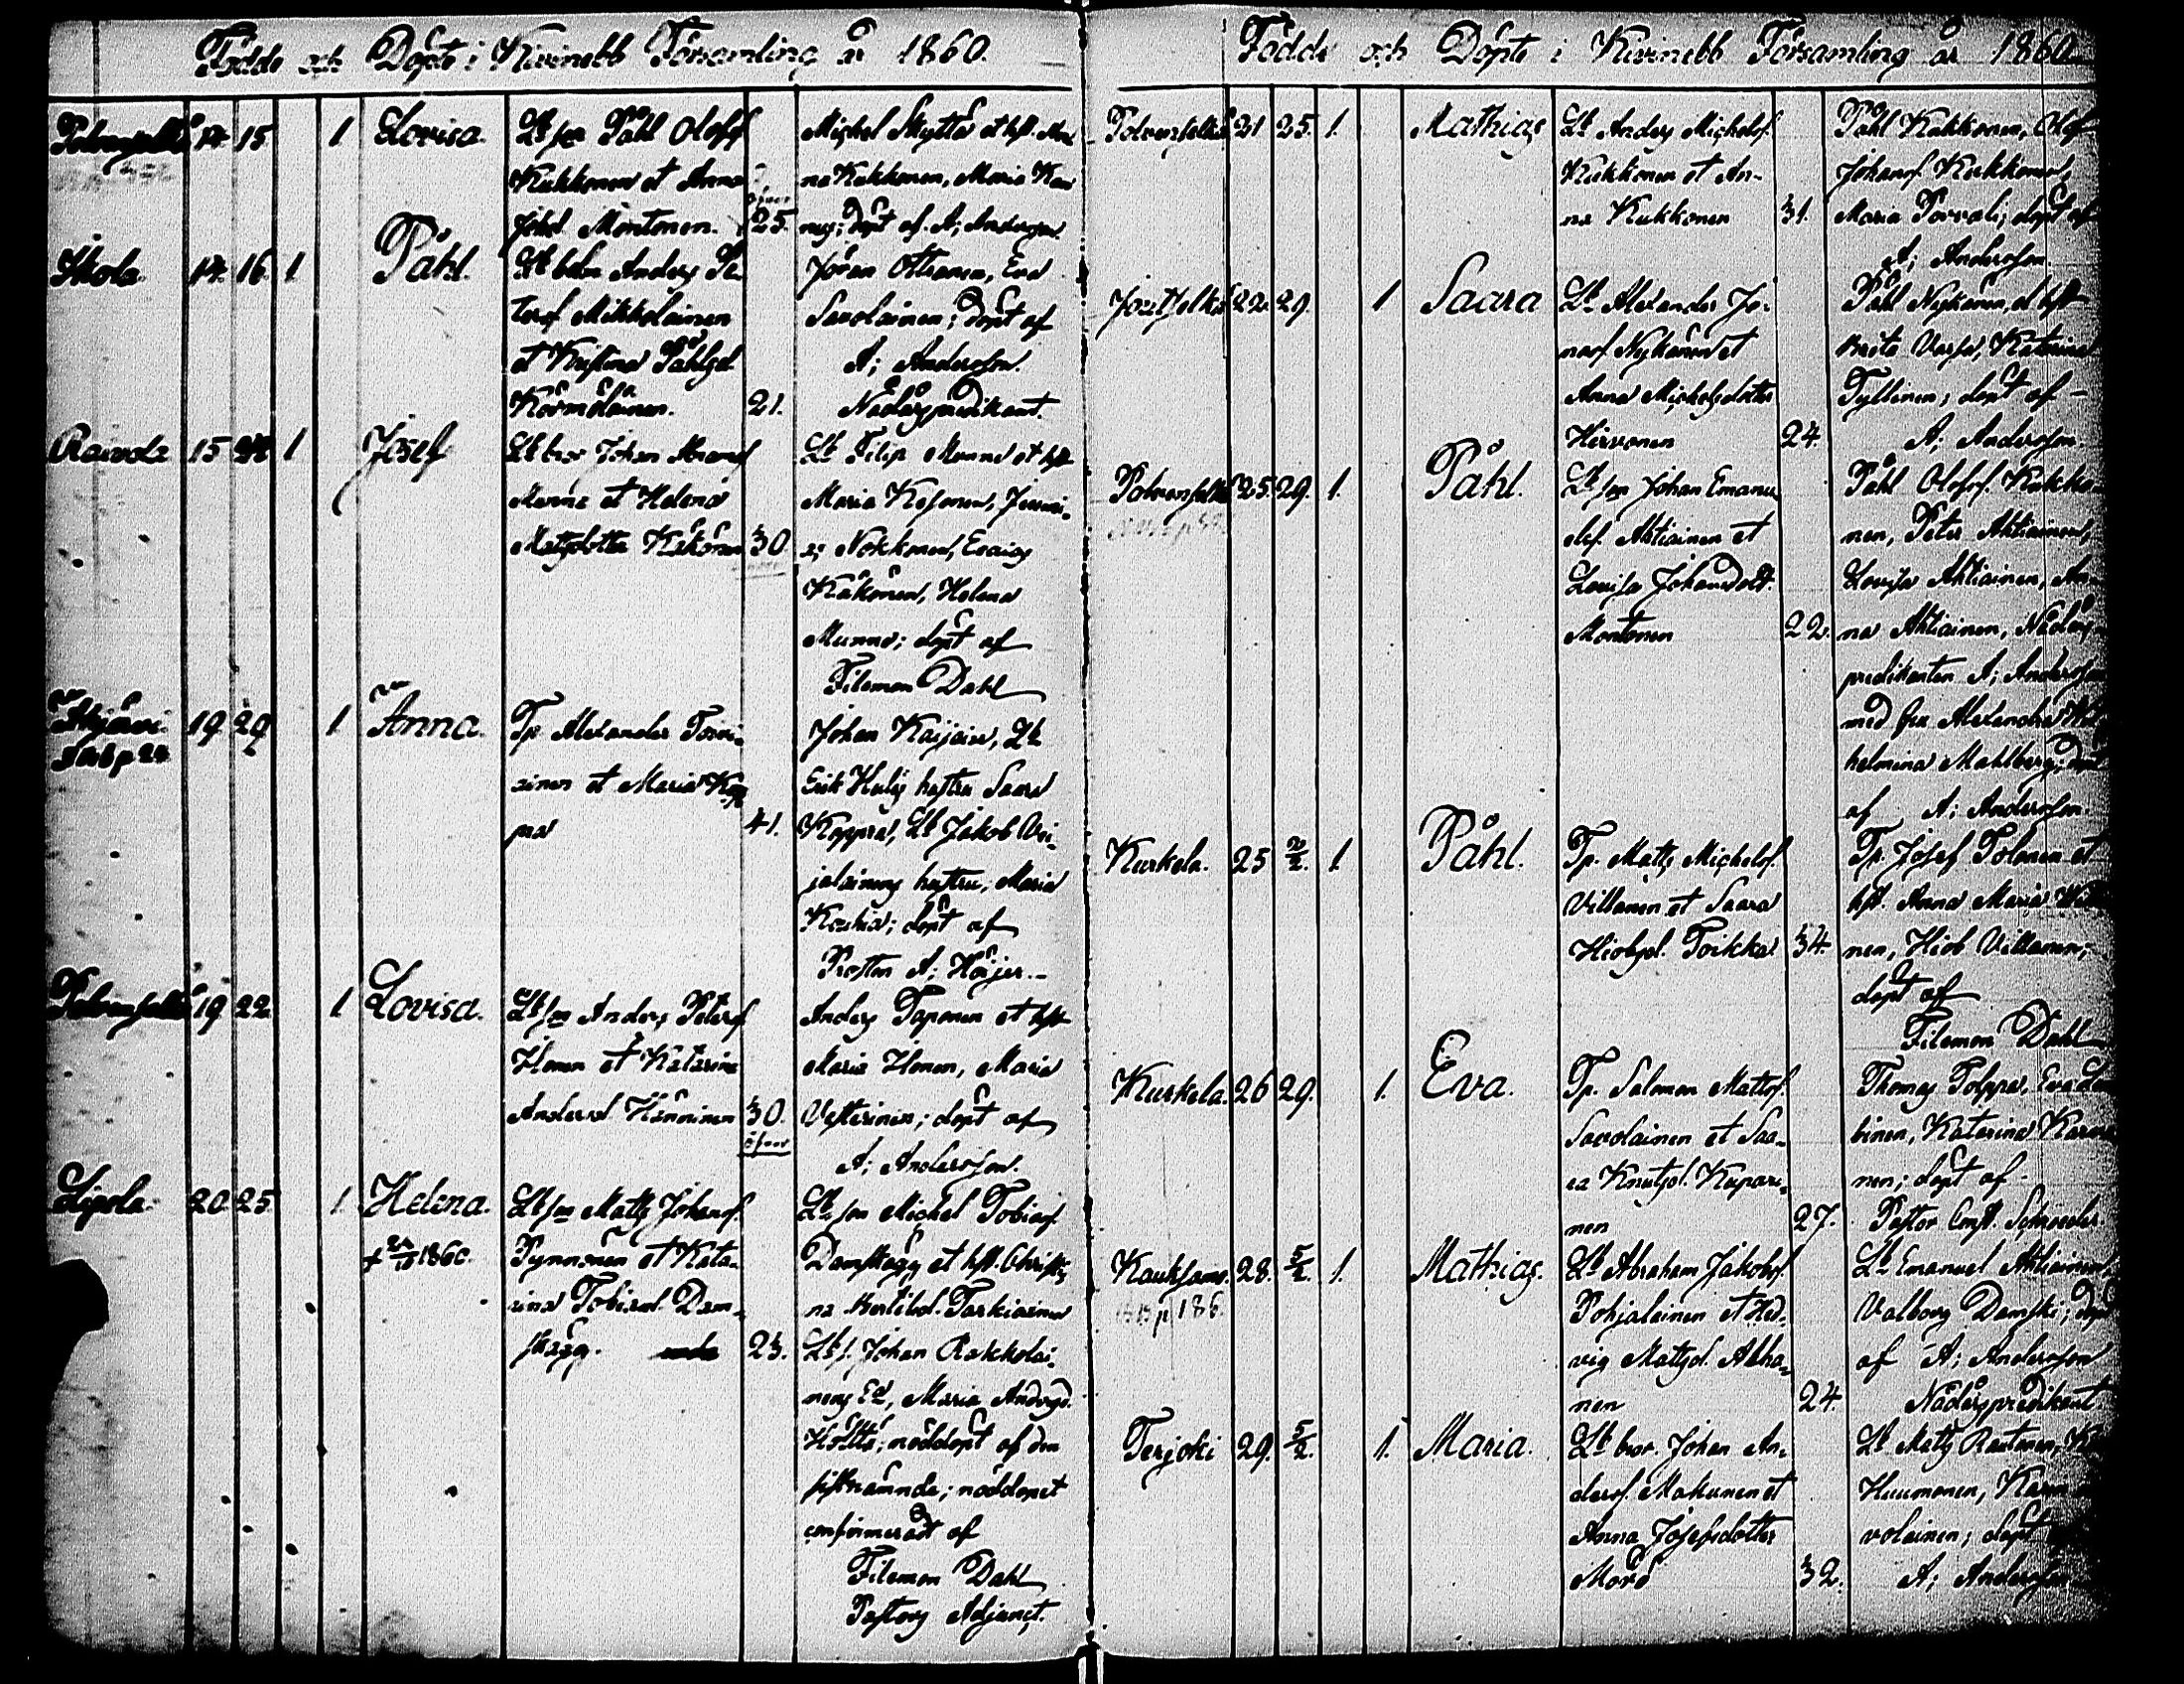 Födde och Döpte i Kivinebb Församling år 1860.
Polvenselkä 14 15 1 Lovisa. Lt son Påhl Olofsf
Kukkonen et Anna
Johd. Montonen. 25.
Michel Skyttä et hst. An-
na Kukkonen, Maria
döpt af. A; Andersson.
Ikola. 14. 16. 1 Påhl. Lt bolm Anders Pe-
tersf Mikkolainen
et Kristina Påhlsd.
Körmöläinen. 21.
Jöran Ottranen, Eva
Savolainen; döpt af
A; Andersson.
Nådårspredikant.
Raivola 15 1 Josef Lt bror Johan
Munne et Helena
Matsdotter Käkönen 30
Lt Filip Munne et hst.
Maria Kosonen, Jeremi-
as Nokkonen, Esaias
Käkönen, Helena
Munne; döpt af
Filemon Dahl
19 29 1 Anna. Tp Alexander Toivi-
ainen et Maria Kop
pra 41.
Johan Kaijain, Lt
Erik Hulis hustru Saara
Koppra, Lt Jakob Poi-
jalainens hustru, Maria
Koukia; döpt af
Prosten A; Höijer.-
Polvenselkä 19 22 1 Lovisa. Lt son Anders Petersf
Ilonen et Katarina
Andersd Hänninen 30.
Anders Taponen et hst
Maria Ilonen, Maria
Vesterinen; döpt af
A; Andersson.
Lipola. 20. 25 1 Helena. Lt son Matts Johansf.
1860. Pynnönen et Kata-
rina Tobiasd. Dam-
skägg. 23.
Lt son Michel Tobiasf.
Damskägg et hst. Christi-
na Bertilsd. Tarkiainen
Lt s. Johan Rakkolai-
nens Ea, Maria Andsd.
Höltta; nöddöpt af den
sistnämnda; nöddopet
confirmeradt af
Filemon Dahl
Pastors Adjunct.
Födde och Döpte i Kivinebb Församling år 1860.
Polvenselkä 21 25. 1. Mathias Lt Anders Michelsf.
Kukkonen et An-
na Kukkonen 31.
Påhl Kukkonen, Olof
Johansf. Kukkonen,
Maria Porvali; döpt af
A; Andersson.
Joutselkä 22. 29. 1 Saara Lt Alexander Jö-
ransf. Nykänen et
Anna Michelsdotter
Hirvonen 24.
Påhl Nykänen, et hst
Brita Varpu, Katarina
Tyllinen; döpt af -
A; Andersson
Polvenselkä 25. 29. 1. Påhl. Lt son Johan Emanu
elsf. Ahtiainen et
Lovisa Johansdott.
Montonen 22.
Påhl Olofsf. Kukko-
nen, Peter Ahtiainen,
Lovisa Ahtiainen, An-
na Ahtiainen, Nådårs-
predikanten A; Andersson
med fru Alexandra Wil-
helmina Mahlberg; döpt
af A; Andersson.
Kurkela. 25 2/2. 1 Påhl. Tp. Matts Michelsf.
Villanen et Saara
Hiobsd. Toikka 34.
Tp. Josef Polonen et
hst. Anna Maria
nen, Hiob Villanen;
döpt af
Filemon Dahl
Kurkela. 26 29. 1. Eva. Tp. Salomon Mattsf.
Savolainen et Saa-
ra Knutsd. Kupari-
nen 27.
Thomas Poppra, Eva
binen, Katarina
nen; döpt af.
Pastor Const. Schroeder.
Kauksamo. 28. 5/2. 1. Mathias. Lt Abraham Jakobsf.
p 186. Pohjalainen et Hed-
vig Mattsd. Ahho-
nen 24.
Lt Emanuel Ahtiainen,
Valborg Damski; döpt
af A; Andersson
Nådårspredikant.
Terjoki 29. 5/2. 1. Maria. Lt bror. Johan An-
dersf. Makunen et
Anna Josefsdotter
Mörö 32.
Lt Matts Rautanen,
Huumonen,
volainen; döpt
A; Andersson